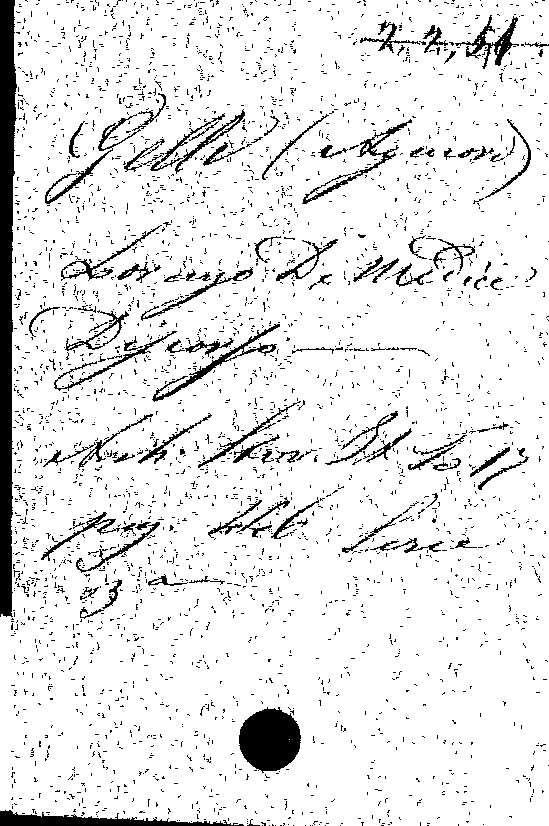 2, 2, 51.
Gelli (Agenore)
Lorenzo De Medici
Discorso
Arch. Stor. It. to 17
pag. 446 Serie
3a